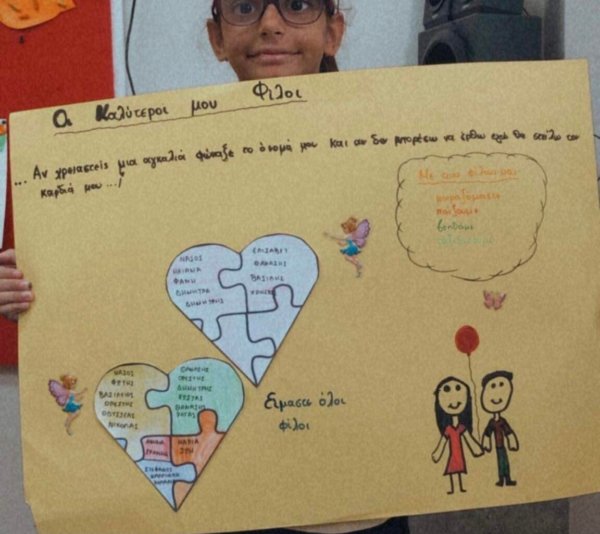 Οι Καλύτεροι μου Φίλοι
... Αν χρειαστείς μια αγκαλιά φώναξε το όνομά μου και αν δεν μπορέσω να έρθω εγώ θα στείλω την
καρδιά μου .../
Με τους φίλους μου
μοιραζόμαστε
παίζουμε
βοηθάμε
ΝΑΣΟΣ
ΗΛΙΑΝΑ
ΦΑΝΗ
ΔΗΜΗΤΡΑ
ΔΗΜΗΤΡΗΣ
ΕΛΙΣΑΒΕΤ
ΘΑΝΑΣΗΣ
ΒΑΣΙΛΗΣ
ΧΡΗΣΤΟΣ
ΝΑΣΟΣ
ΦΩΤΗΣ
ΒΑΣΙΛΕΙΟΣ
ΟΡΕΣΤΗΣ
ΟΔΥΣΣΕΑΣ
ΝΙΚΟΛΑΣ
ΘΑΝΑΣΗΣ
ΟΡΕΣΤΗΣ
ΔΗΜΗΤΡΗΣ
ΚΩΣΤΑΣ
ΘΑΝΑΣΗΣ
ΜΑΡΙΑ
ΖΩΗ
ΣΤΕΦΑΝΟΣ
Είμαστε όλοι
φίλοι